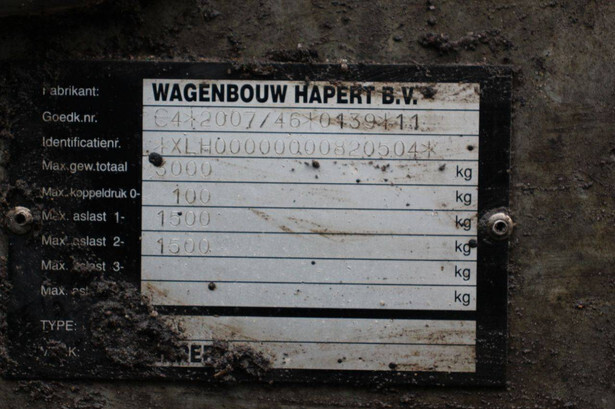 Fabrikant: WAGENBOUW HAPERT B.V.
Goedk.nr. *2007/46*0139*11
Identificatienr. XLH00000000820504*
Max.gew.totaal 3000 kg
Max. koppeldruk 0- 100 kg
Max. aslast 1- 1500 kg
Max. aslast 2- 1500 kg
Max. aslast 3- kg
Max. kg
TYPE: